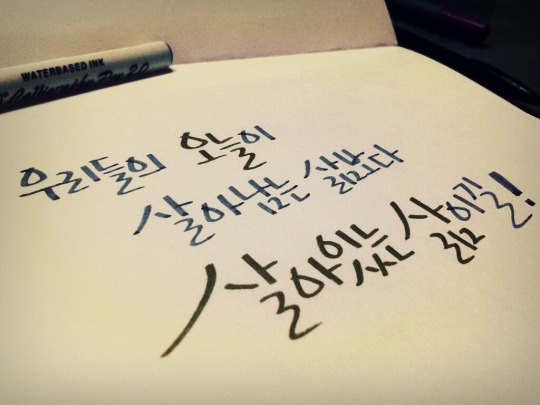 WATERBASED INK
Calligraphy Pen
우리들의 오늘이
살아남는 삶보다
살아있는 삶이길!